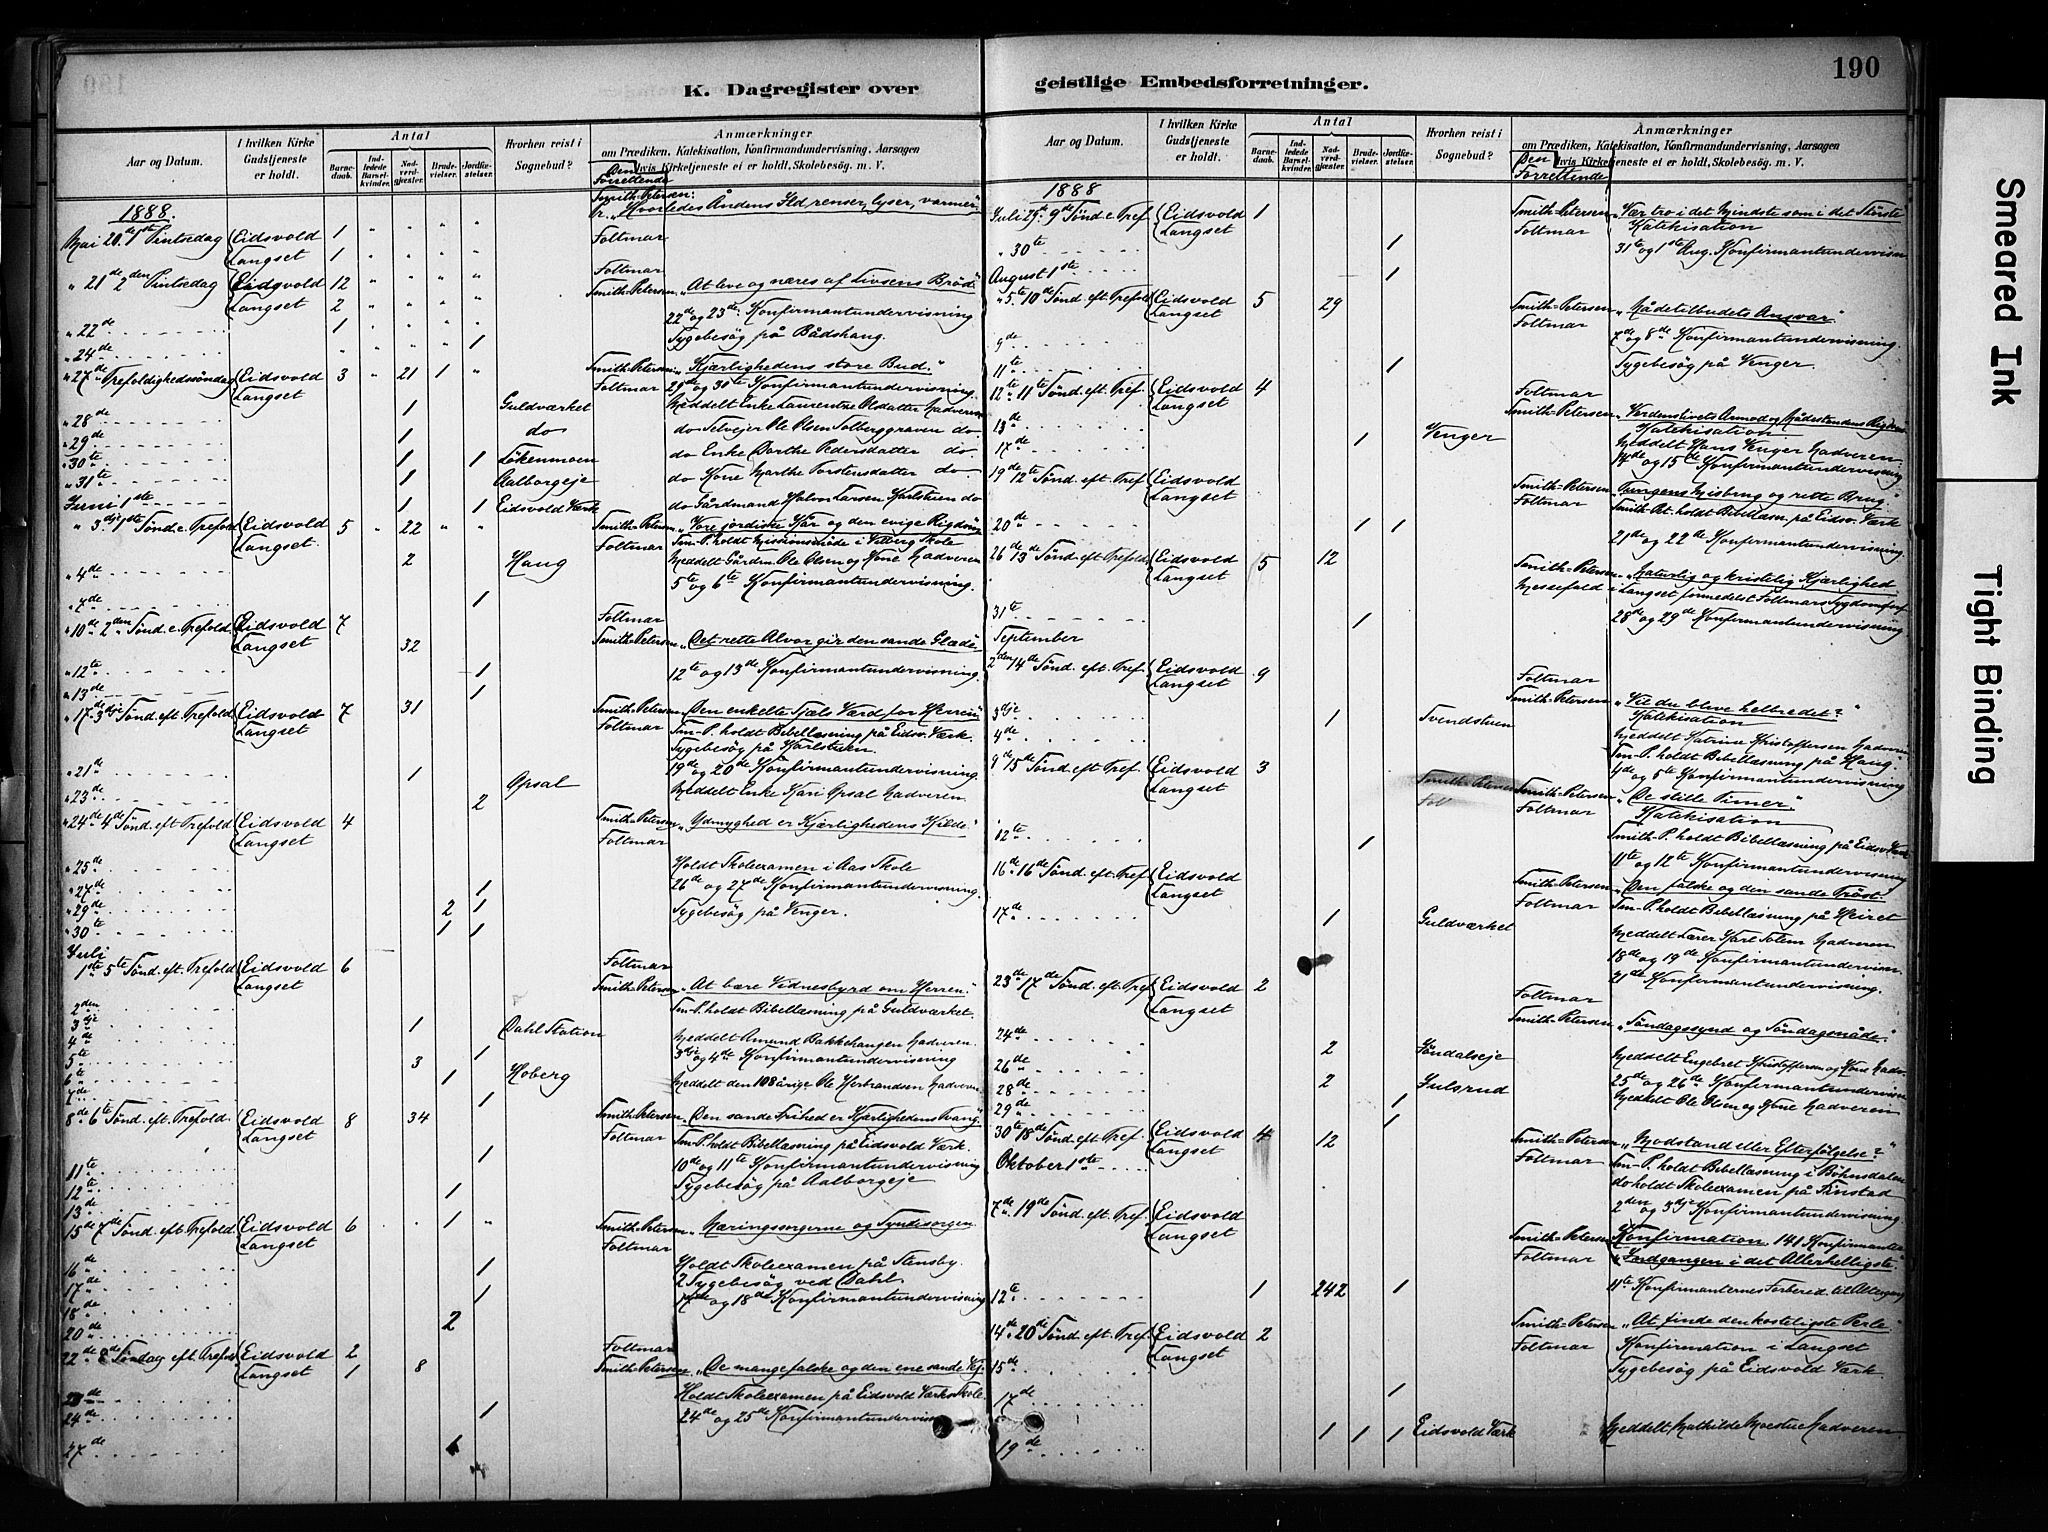 K. Dagregister over
Aar og Datum.
I hvilken Kirke Gudstjeneste er holdt.
Antal
Barnedaab.
Indledede Barselkvinder.
Nadverdgjæster.
Brudevielser.
Jordfæstelser.
Hvorhen reist i Sognebud?
Anmærkninger
om Prædiken, Katekisation, Konfirmandundervisning, Aarsagen hvis Kirketjeneste ei er holdt, Skolebesøg. m. V.
Den Forrettende
1888.
Smith-Petersen: "Hvorledes Åndens Ild renser, lyser, varmer"
Mai 20de 1ste Pintsedag Eidsvold 1 " " " " Foltmar
Langset 1 " " " "
" 21de 2den Pintsedag Eidsvold 12 " " " " Foltmar
Langset 2 " " " " Smith-Petersen "At leve og næres af Livsens Brød"
" 22de 1 " " " " 22de og 23de Konfirmantundervisning
" 24de " " " " 1 Sygebesøg på Bådshaug.
" 27de Trefoldighedssøndag Eidsvold 3 " 21 1 " Smith-Petersen "Kjærlighedens store Bud."
Langset Foltmar 29de og 30te Konfirmantundervisning.
" 28de 1 Guldværket Meddelt Enke Laurentze Olsdatter Nadveren
" 29de 1 do do Selvejer Ole Olsen Solberggraven do.
" 30te 1 1 Løkenmoen do Enke Dorthe Pedersdatter do
" 31te 1 Aalborgeje do Kone Marthe Torstensdatter do
Juni 1ste 1 1 Eidsvold Værk do Gårdmand Halvor Larsen Karlstuen do
" 3dje 1ste Sønd. e. Trefold Eidsvold 5 " 22 " " Smith-Petersen "Vore jordiske Kår og den evige Rigdom"
Langset. Foltmar Sm-P. holdt Missionsmøde i Vilberg Skole
" 4de 2 Haug Meddelt Gårdm. Ole Olsen og Kone Nadveren
5te og 6te Konfirmantundervisning.
" 7de 1
" 10de 2den Sønd. e. Trefold Eidsvold 7 Foltmar
Langset 32 Smith-Petersen "Det rette Alvor gir den sande Glæde"
" 12te 1 12te og 13de Konfirmantundervisning.
" 13de 1
" 17de 3dje Sønd. eft. Trefold Eidsvold 7 31 Smith-Petersen "Den enkelte Sjæls Værd for Herren"
Langset Foltmar Sm-P. holdt Bibellæsning på Eidsv. Værk.
Sygebesøg på Karlstuen.
" 21de 19de og 20de Konfirmantundervisning.
" 23de 1 2 Opsal Meddelt Enke Kari Opsal Nadveren.
" 24de 4de Sønd. eft. Trefold Eidsvold 4 Smith-Petersen "Ydmyghed er Kjærlighedens Kilde"
Langset Foltmar
" 25de Holdt Skoleexamen i Aas Skole
" 27de 1 26de og 27de Konfirmantundervisning.
" 29de 2 1 Sygebesøg på Venger.
" 30te 1 1
Juli
1ste 5te Sønd. eft. Trefold Eidsvold 6 Foltmar
Langset Smith-Petersen "At bære Vidnesbyrd om Herren."
2den Sm-P. holdt Bibellæsning på Guldværket.
3dje
4de 1 Dahl Station Meddelt Amund Bakkehaugen Nadveren.
5te 3 1 3dje og 4de Konfirmantundervisning
6te 1 Hoberg Meddelt den 108 årige Ole Herbrandsen Nadveren
7de 1
8de 6te Sønd. eft. Trefold. Eidsvold 8 34 Smith-Petersen "Den sande Frihed er Kjærlighedens Tvang"
Langset Foltmar Sm-P. holdt Bibellæsning på Eidsvold Værk.
11te 1 10de og 11te Konfirmantundervisning
12te Sygebesøg på Aalborgeje
13de 1
15de 7de Sønd. eft. Trefold Eidsvold 6 1 " Smith-Petersen "Næringssorgerne og Syndesorgen
Langset Foltmar
16de 1 Holdt Skoleexamen på Stensby.
17de 2 Sygebesøg ved Dahl.
18de 1 17de og 18de Konfirmantundervisning
20de 2
22de 8de Søndag eft. Trefold. Eidsvold 2 Foltmar
Langset 1 8 Smith-Petersen "De mange falske og den ene sande Vej.
23de Holdt Skoleexamen på Eidsvold Værks Skole.
24de 1 24de og 25de Konfirmantundervisn
27de 1
190
geistlige Embedsforretninger.
Aar og Datum.
I hvilken Kirke Gudstjeneste er holdt.
Antal
Barnedaab.
Indledede Barselkvinder.
Nadverdgjæster.
Brudevielser.
Jordfæstelser.
Hvorhen reist i Sognebud?
Anmærkninger
om Prædiken, Katekisation, Konfirmandundervisning, Aarsagen hvis Kirketjeneste ei er holdt, Skolebesøg. m. V.
Den Forrettende
1888
Juli 29de 9de Sønd. e. Tref Eidsvold 1 Smith-Petersen "Vær tro i det Mindste som i det Største
Langset Foltmar Katekisation
" 30te 1 31te og 1ste Aug. Konfirmantundervisn.
August 1ste 1
" 5te 10de Sønd eft Trefold Eidsvold 5 29 Smith-Petersen "Nådetilbudets Ansvar"
Langset Foltmar 7de og 8de Konfirmantundervisning.
9de
11te 1 Sygebesøg på Venger.
12te 11te Sønd. eft. Tref. Eidsvold 4 Foltmar
Langset Smith-Petersen "Verdenslivets Armod og Nådestandens Rigdom
13de Katekisation
17de 1 Venger Meddelt Hans Venger Nadveren
14de og 15de Konfirmantundervisning
19de 12te Sønd. eft. Tref Eidsvold Smith-Petersen "Tungens Misbrug og rette Brug."
Langset Foltmar Smith-Pet. holdt Bibellæsn. på Eidsv. Værk
20de 1 1
21de og 22de Konfirmantundervisning
26de 13de Sønd. eft Trefold Eidsvold 5 12 Smith-Petersen "Naturlig og kristelig Kjærlighed
Langset Messefald i Langset formedelst Foltmars Sygdomsforf
31te 1 28de og 29de Konfirmantundervisning
September
2den 14de Sønd. eft. Tref. Eidsvold 9 Foltmar
Langset Smith-Petersen "Vil du blive helbredet?"
3dje Katekisation
4de 1 Svendstuen Meddelt Katrine Kristoffersen Nadveren
Sm-P. holdt Bibellæsning på Haug
9de 15de Sønd eft Tref. Eidsvold 3 4de og 5te Konfirmantundervisning
Langset Smith-Petersen Smith-Petersen "De stille Timer."
Folt Foltmar Katekisation
12te 1 Smith-P. holdt Bibellæsning på Eidsv. Værk
11te og 12te Konfirmantundervisning
16de 16de Sønd. eft. Tref. Eidsvold Smith-Petersen "Den falske og den sande Trøst.
Langset Foltmar Sm-P. holdt Bibellæsning på Meiret
17de 1 Guldværket Meddelt Lærer Karl Solem Nadveren
18de og 19de Konfirmantundervisn
21de Konfirmantundervisning.
23de 17de Sønd. eft. Tref Eidsvold 2 Foltmar
Langset Smith-Petersen "Søndagssynd og Søndagsnåde"
24de 2 Søndalseje Meddelt Engebret Kristoffersen og Kone Nadv.
26de 25de og 26de Konfirmantundervisn
28de 2 Julsrud Meddelt Ole Olsen og Kone Nadveren
29de 1
30te 18de Sønd. eft. Tref. Eidsvold 4 12 1 Smith-Petersen "Modstand eller Efterfølgelse?"
Langset Foltmar Sm-P. holdt Bibellæsning i Bøhnsdalen
Oktober 1ste do holdt Skoleexamen på Finstad
2den og 3dje Konfirmantundervisning.
7de 19de Sønd. eft. Tref. Eidsvold Smith-Petersen Konfirmation. 141 Konfirmanter
Langset Foltmar "Indgangen i det Allerhelligste.
12te 1 242 1 11te Konfirmanternes Forbered. til Altergang
14de 20de Sønd. eft. Tref. Eidsvold 2 Smith-Petersen "At finde den kosteligste Perle"
Langset Foltmar Konfirmation i Langset
15de Sygebesøg på Eidsvold Værk.
17de 1
19de 1 1 1 Eidsvold Værk Meddelt Mathilde Moestue Nadveren
Smeared Ink
Tight Binding